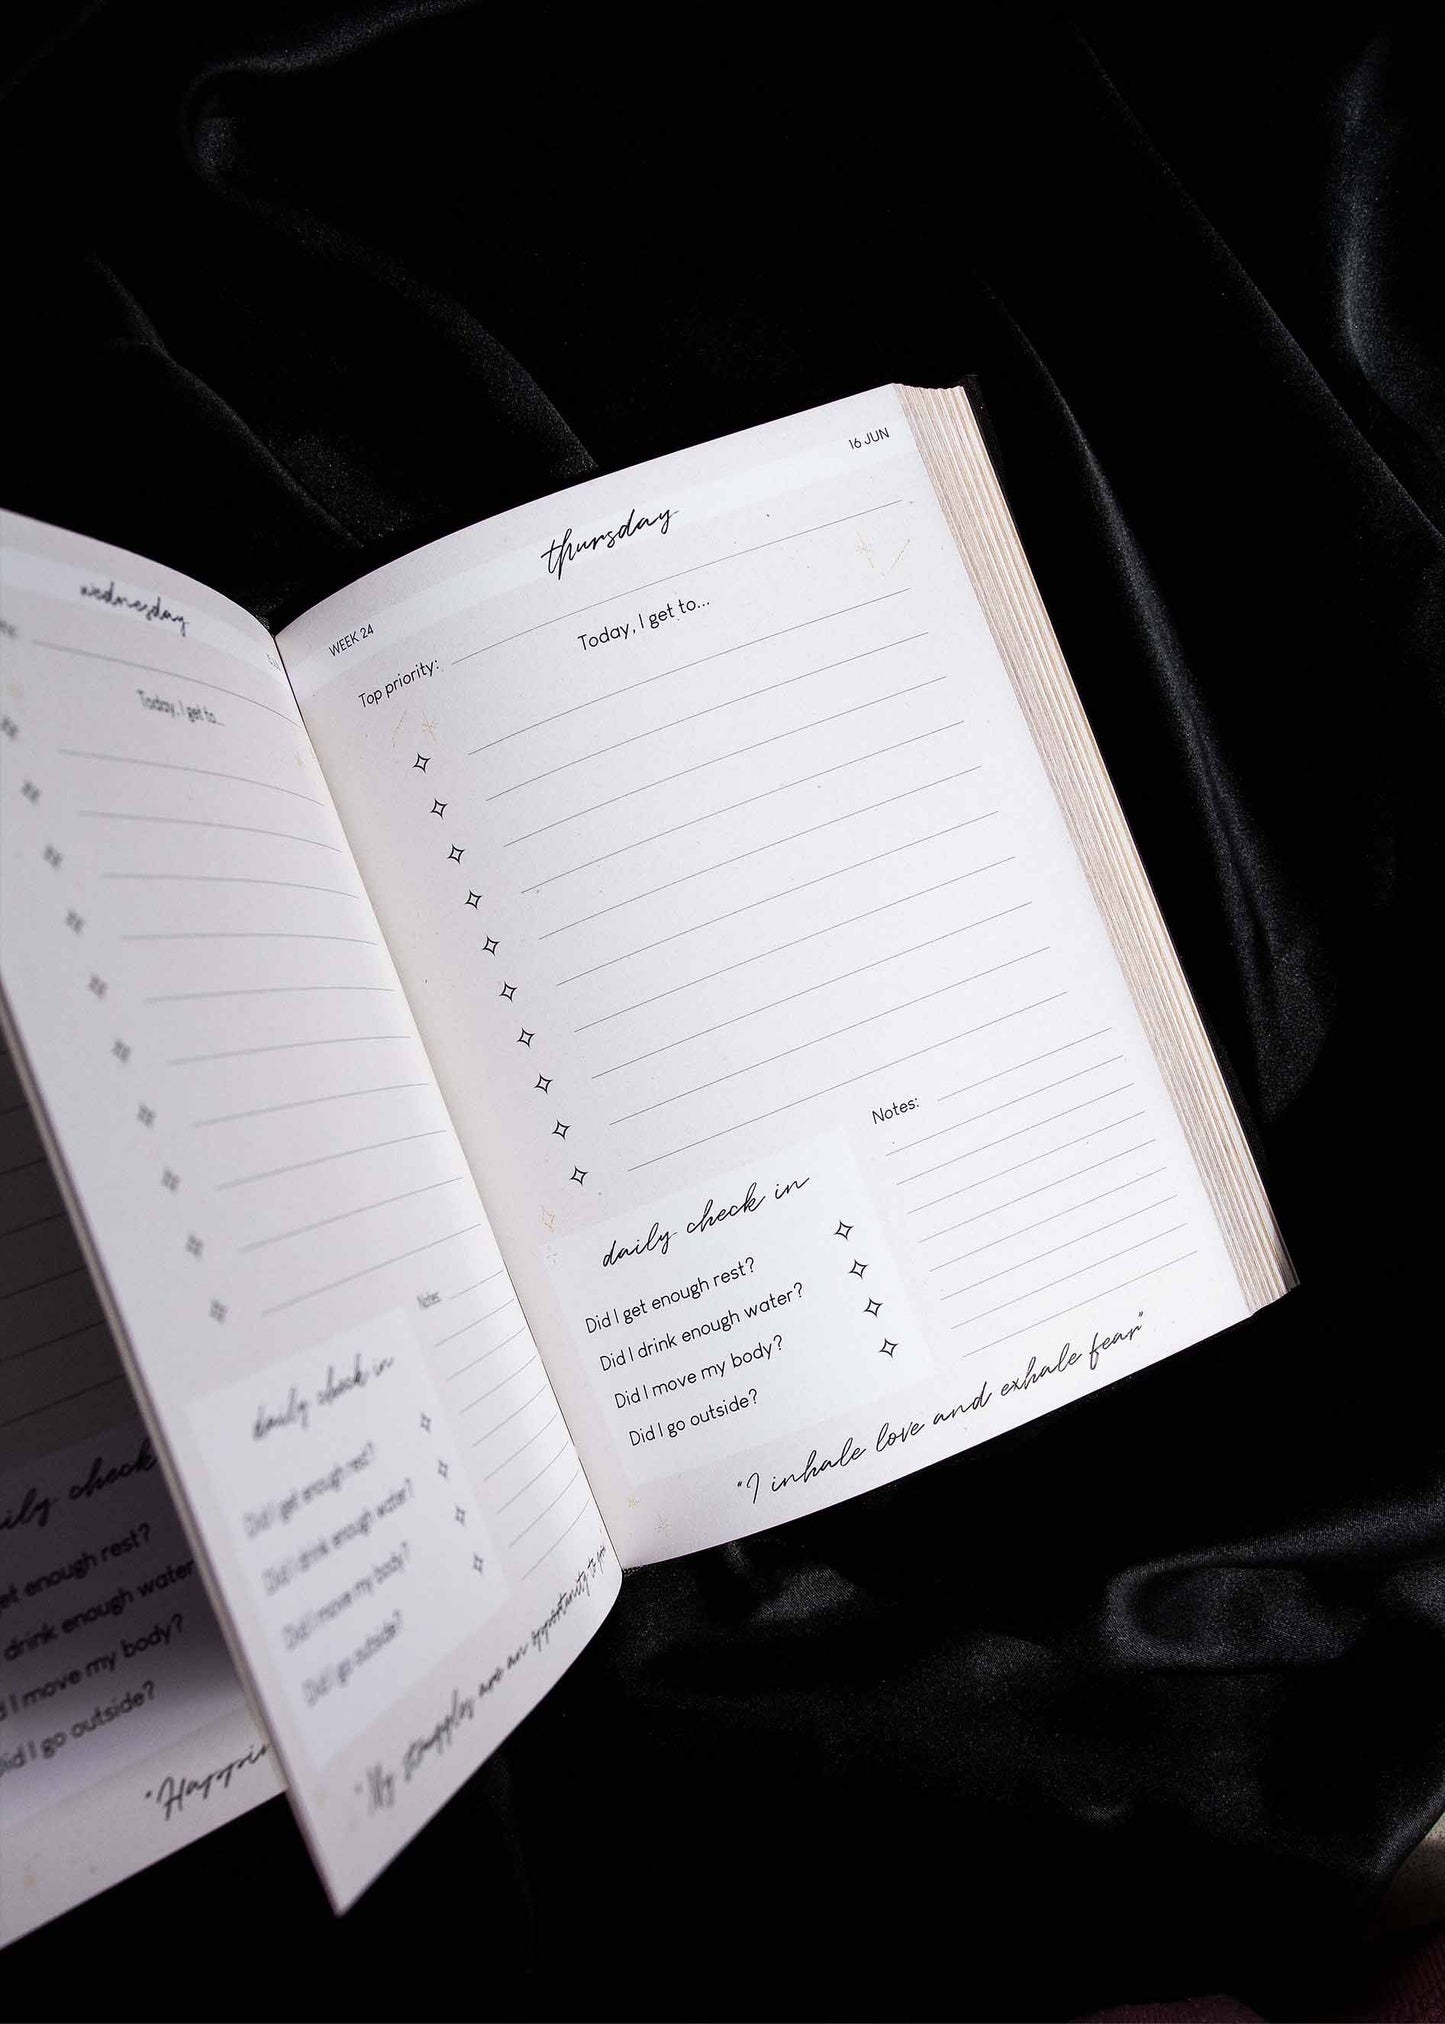 wednesday
Today, I get to...
Notes:
daily check in
Did I get enough rest?
Did I drink enough water?
Did I move my body?
Did I go outside?
"My struggles are an opportunity to
daily check
get enough rest?
drink enough water
I move my body?
Did I go outside?
16 JUN
thursday
WEEK 24
Top priority:
Today, I get to...
Notes:
daily check in
Did I get enough rest?
Did I drink enough water?
Did I move my body?
Did I go outside?
"I inhale love and exhale fear"